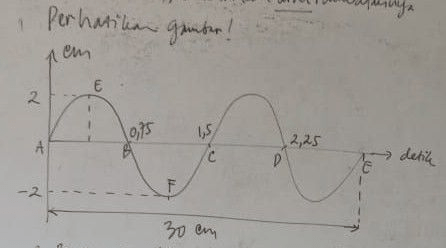 1 Perhatikan gambar!
cm
2
E
A
B
0,75
1,5
C
D
2,25
E
detik
-2
F
30 cm